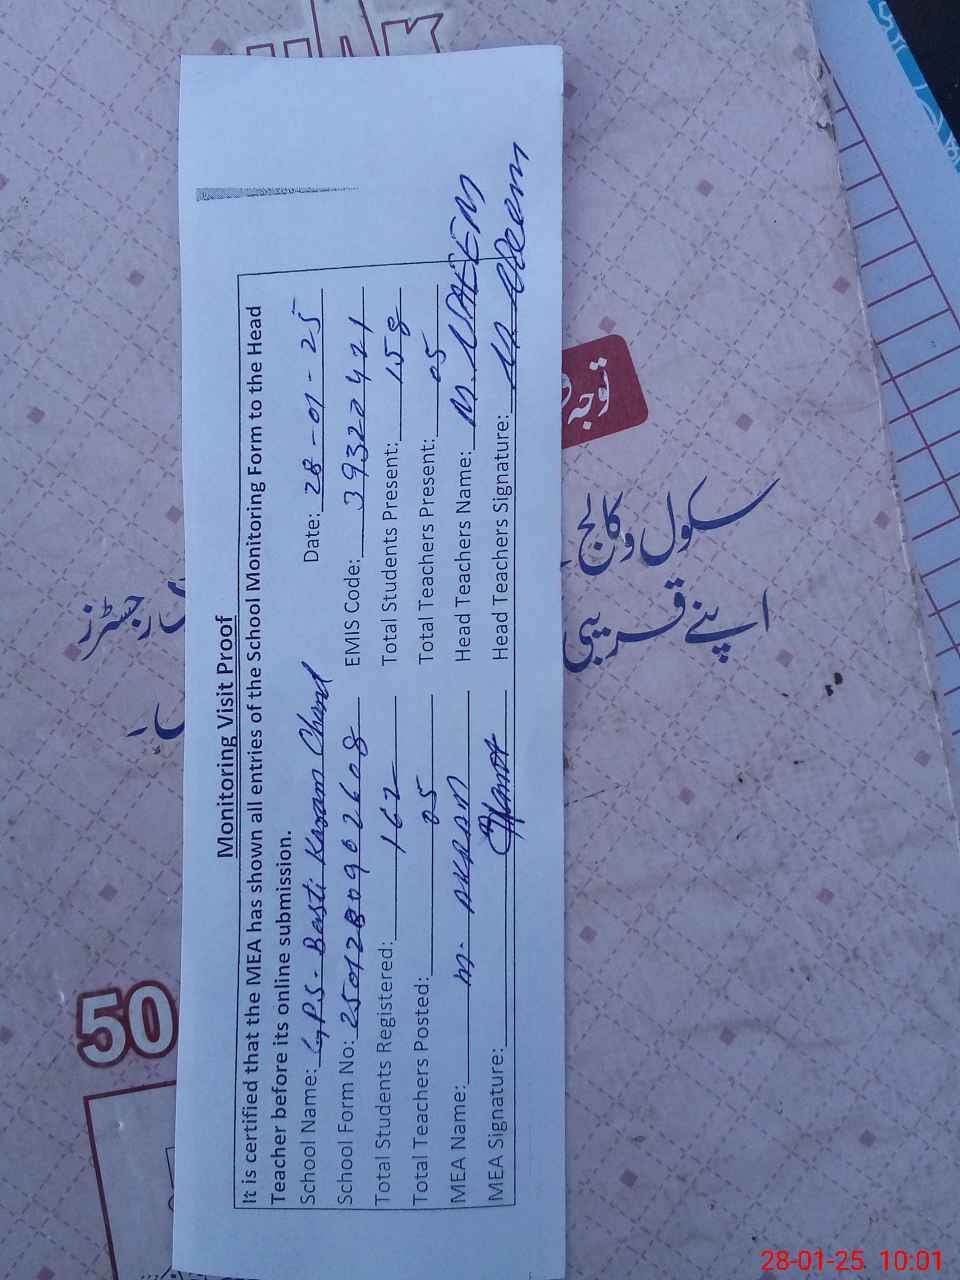 Monitoring Visit Proof
It is certified that the MEA has shown all entries of the School Monitoring Form to the Head
Teacher before its online submission.
School Name: GPS- Basti Karam Chand Date: 28-01-25
School Form No: 2501280902608 EMIS Code: 39322421
Total Students Registered: 162 Total Students Present: 158
Total Teachers Posted: 05 Total Teachers Present: 05
MEA Name: M. AKRAM Head Teachers Name: M. NAEEM
MEA Signature: Head Teachers Signature: M. Naeem
50
توجہ
سکول و کالج
اپنے قریبی
رجسٹرز
28-01-25 10:01